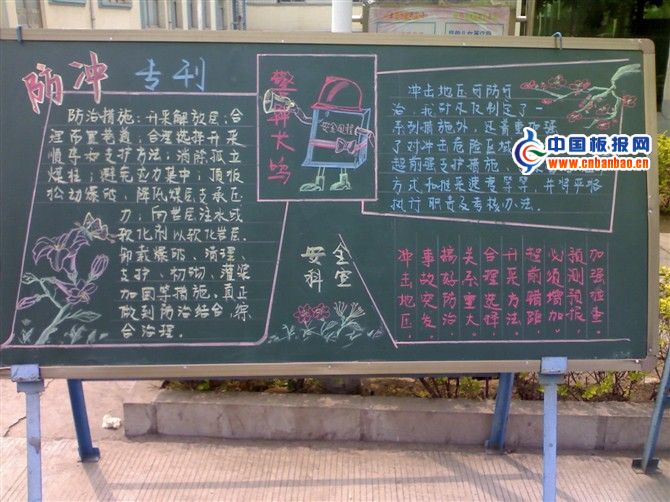 防冲 专刊
防治措施:开采解放层;合
理布置巷道;合理选择开采
顺序如支护方法;消除孤立
煤柱;避免应力集中;顶板
松动爆破,降低煤层支承压
力;向岩层注水或
软化剂以软化岩层,
卸载爆破、清理、
支护、切物、灌浆
加固等措施,真正
做到防治结合,综
合治理。
警钟大鸣
安全围栏
安全
科宣
冲击地区可防可
治,我矿不仅制定了一
系列措施外,还着重加强
了对冲击危险区域
超前强支护措施、
方式和推采速度等等,并将严格
执行职责及考核办法。
冲击地压
事故突发
搞好防治
关系重大
合理选择
开采方法
程前错距
必须增加
预测预报
加强检查
中国板报网
www.cnbanbao.cn